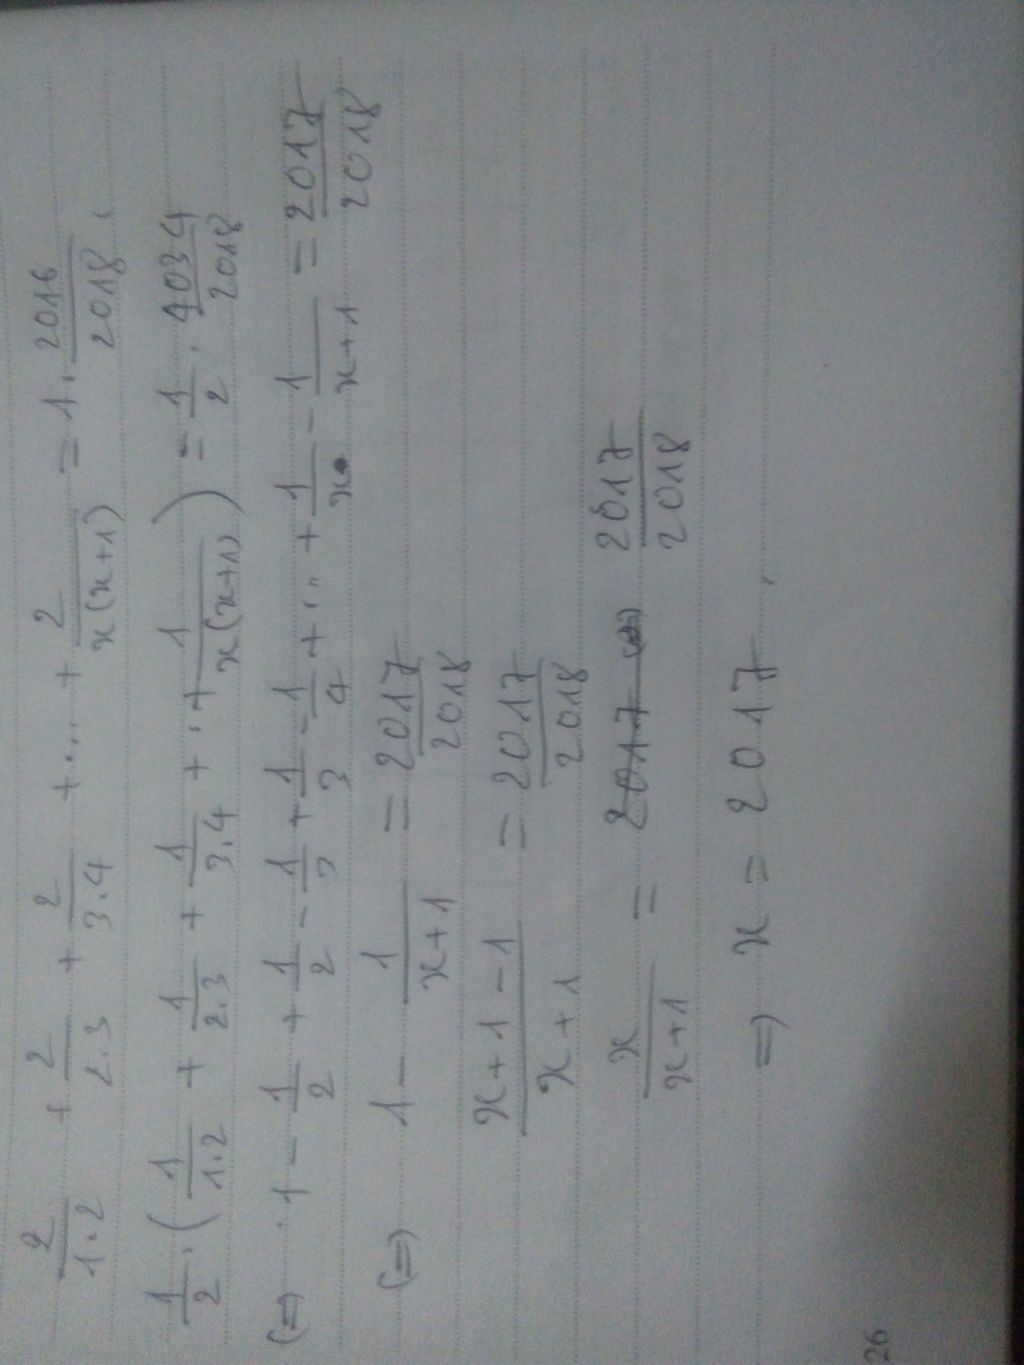 2/1.2 + 2/2.3 + 2/3.4 + ... + 2/x(x+1) = 1 . 2016/2018
1/2 . (1/1.2 + 1/2.3 + 1/3.4 + ... + 1/x(x+1)) = 1/2 . 4034/2018
(=) 1 - 1/2 + 1/2 - 1/3 + 1/3 - 1/4 + ... + 1/x - 1/x+1 = 2017/2018
(=) 1 - 1/x+1 = 2017/2018
x+1-1/x+1 = 2017/2018
x/x+1 = 2017 2017/2018
=) x = 2017
26